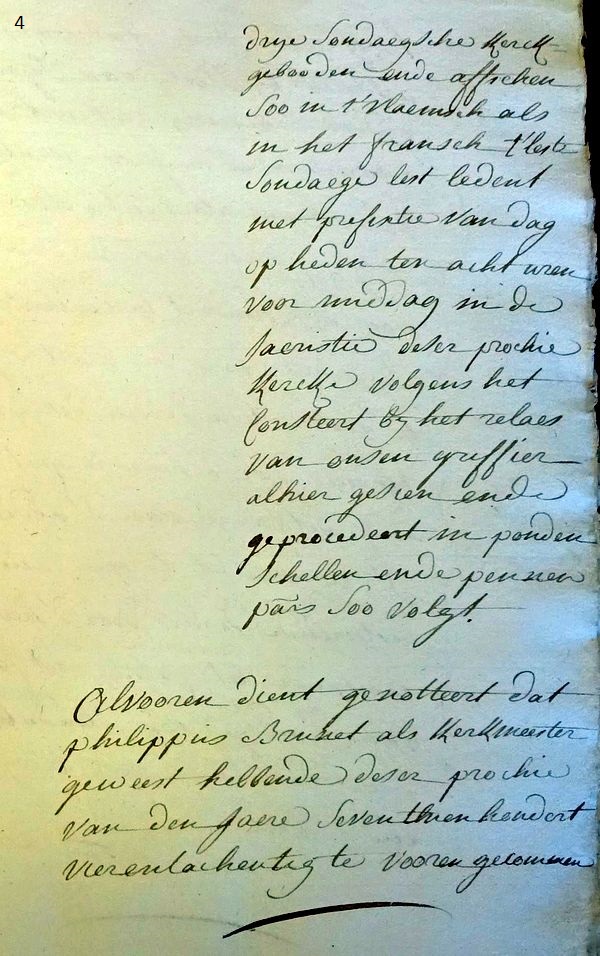 4
drije Sondaegsche Kerck=
gebooden ende affichen
Soo in t'vlaemsch als
in het fransch t'leste
Sondaege lest ledent
met prefixtie van dag
op heden ten acht uren
voor middag in de
sacristie deser prochie
Kercke volgens het
Consteert bij het relaes
van onsen greffier
alhier gesien ende
geprocedeert in ponden
schellen ende pennen
pars Soo volgt.
Alvooren dient genotteert dat
philippus Brunet als Kerkmeester
geweest hebbende deser prochie
van den Jaere Seventhien hondert
vierentachentig te vooren gecommen